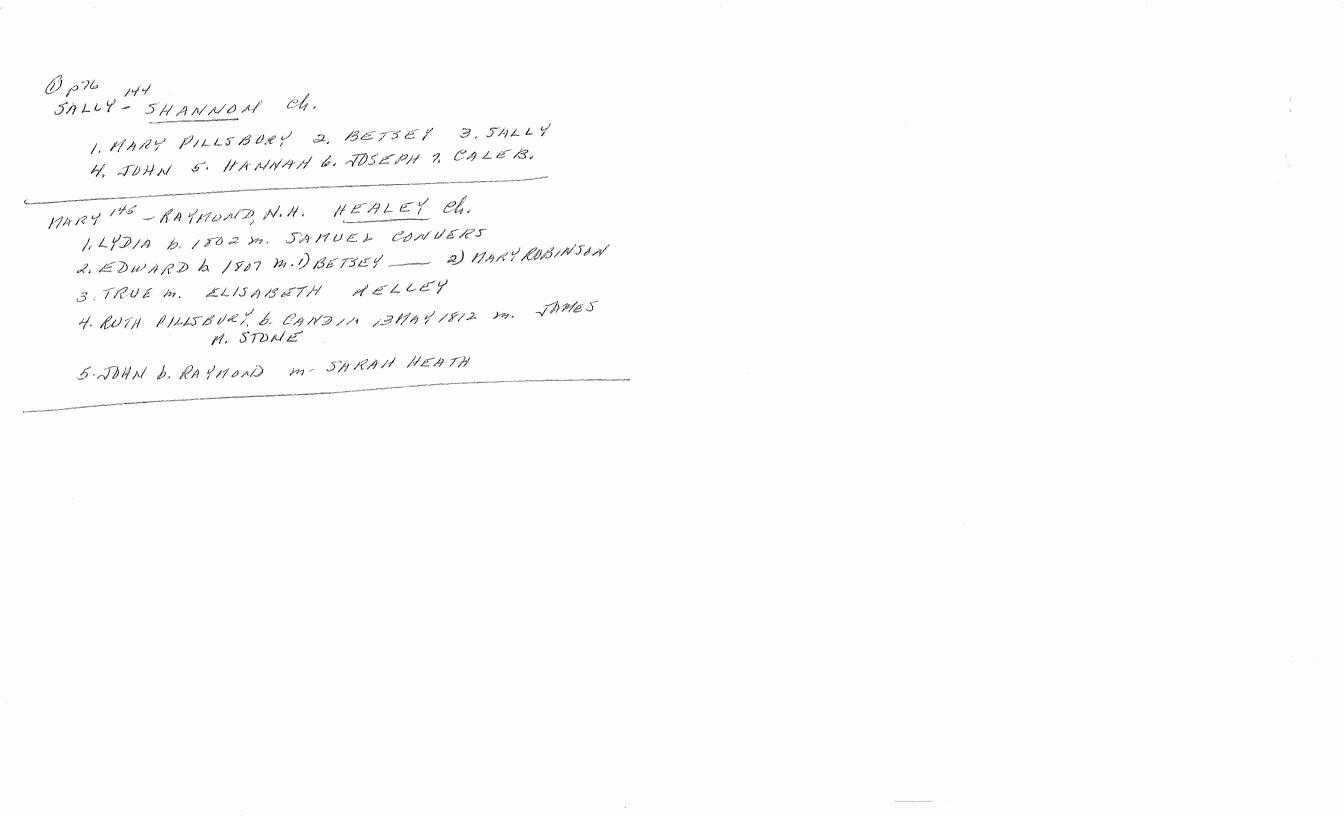 ① p76 144
SALLY - SHANNON Ch.
1. MARY PILLSBURY 2. BETSEY 3. SALLY
4. JOHN 5. HANNAH 6. JOSEPH 7. CALEB.
MARY 145 - RAYMOND, N.H. HEALEY Ch.
1. LYDIA b. 1802 m. SAMUEL CONVERS
2. EDWARD b 1807 m. 1) BETSEY —— 2) MARY ROBINSON
3. TRUE m. ELISABETH KELLEY
4. RUTH PILLSBURY, b. CANDIA 13 MAY 1812 m. JAMES
M. STONE
5. JOHN b. RAYMOND m- SARAH HEATH